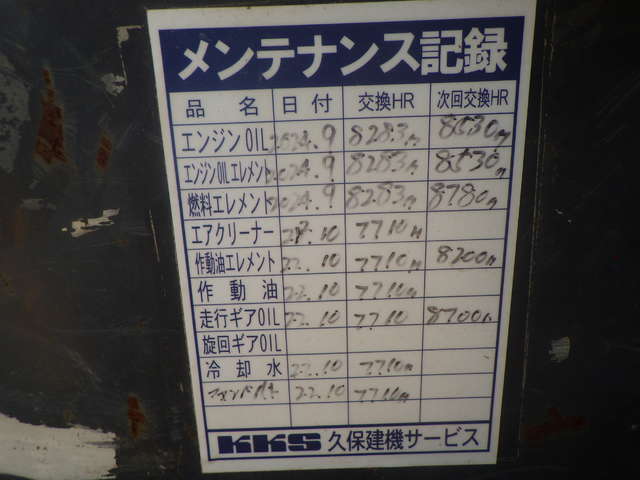 メンテナンス記録
品 名 日 付 交換HR 次回交換HR
エンジンOIL 2024.9 8283H 8530H
エンジンOILエレメント 2024.9 8283H 8530H
燃料エレメント 2024.9 8283H 8780H
エアクリーナー 22.10 7710H
作動油エレメント 22.10 7710H 8200H
作 動 油 22.10 7710H
走行ギアOIL 22.10 7710 8700H
旋回ギアOIL
冷 却 水 22.10 7710H
22.10 7710H
KKS 久保建機サービス